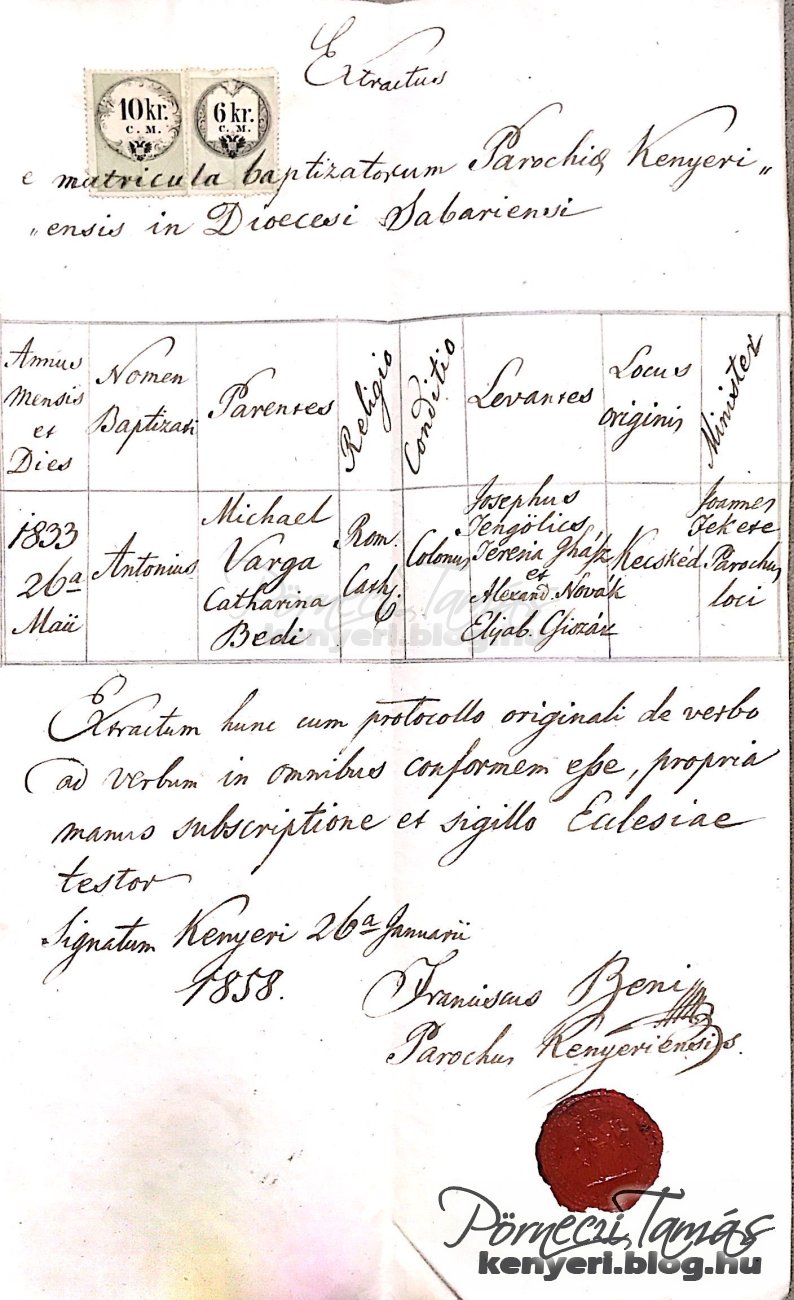 Extractus
10 kr. 6 kr.
C. M. C. M.
e matricula baptizatorum Parochiae Kenyeri„
„ensis in Dioecesi Sabariensi
Annus
Mensis
et
Dies
Nomen
Baptizati
Parentes
Religio
Conditio
Levantes
Locus
originis
Minister
1833
26a
Maii
Antonius
Michael
Varga
Catharina
Bedi
Rom.
Cath.
Colonus
Josephus
Jengölics
et
Alexand. Novák
Elisab.
Kecskéd
Joannes
Fekete
Parochus
loci
Extractum hunc cum protocollo originali de verbo
ad verbum in omnibus conformem esse, propria
manus subscriptione et sigillo Ecclesiae
testor
Signatum Kenyeri 26a Januarii
1858.
Franciscus Beni
Parochus Kenyeriensis.
Pörneczi Tamás
kenyeri.blog.hu
Pörneczi Tamás
kenyeri.blog.hu